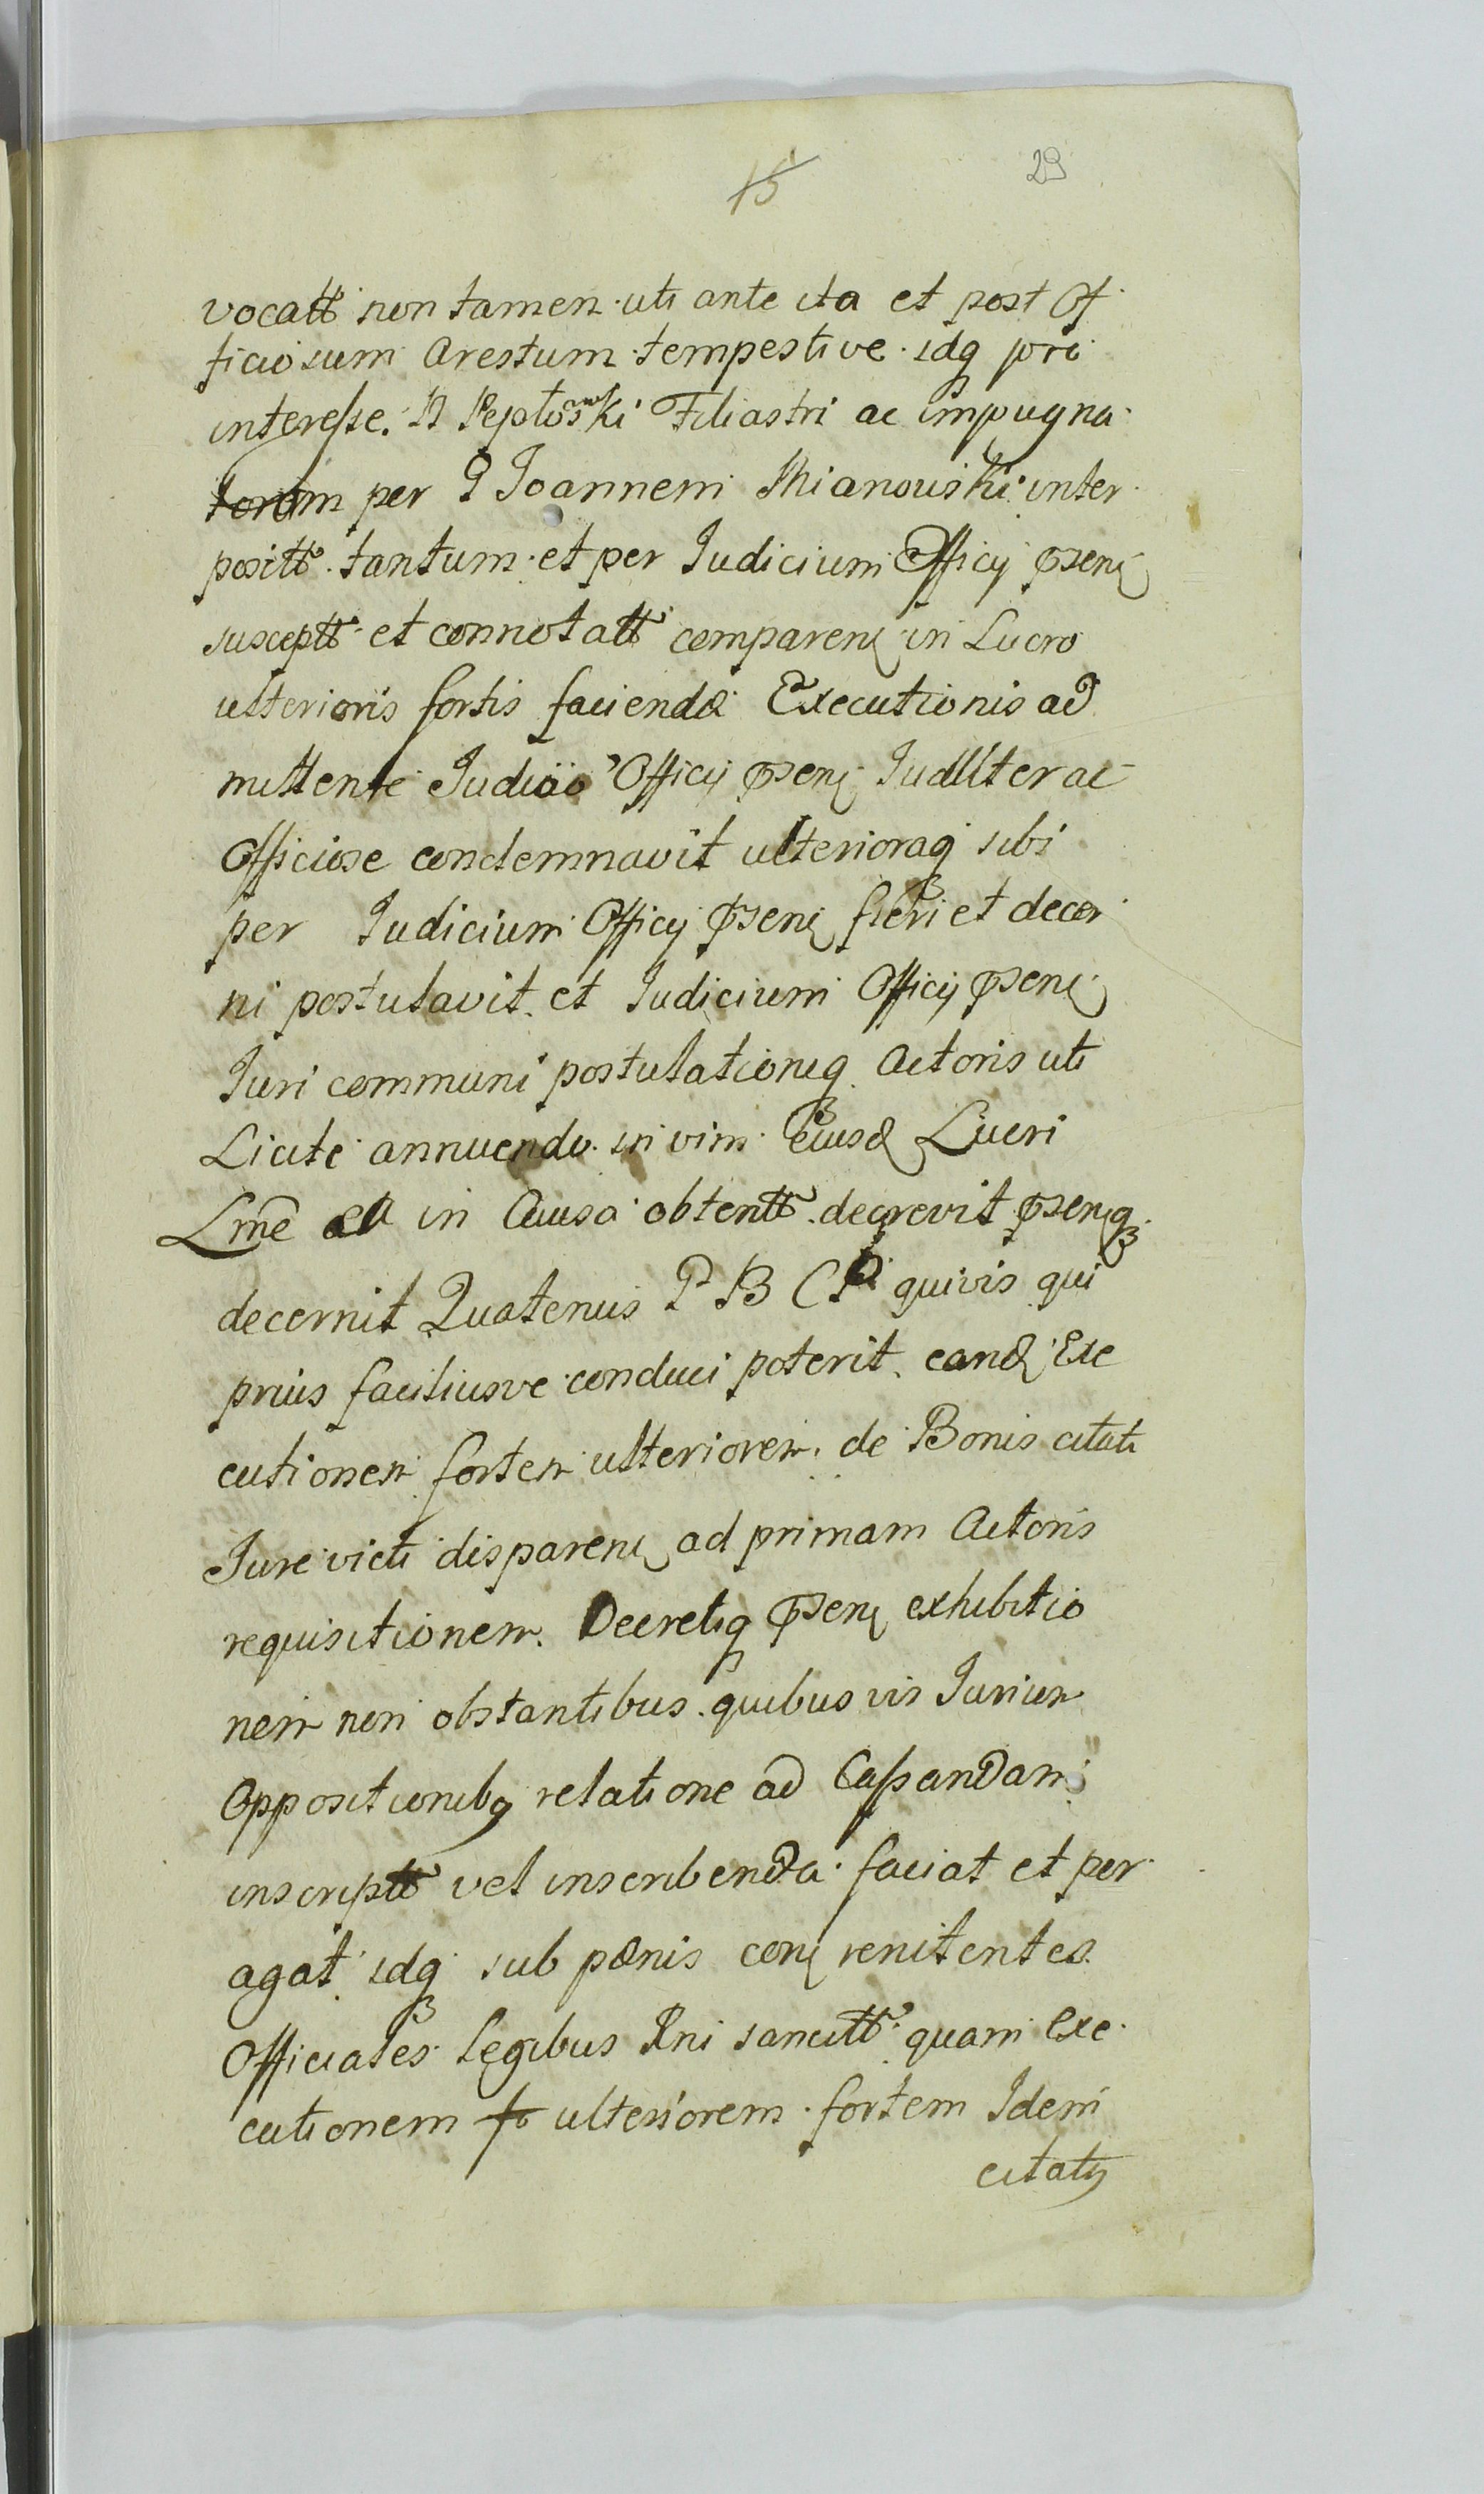 15 29
vocatt non tamen uti ante ita et post Of
ficiosum Arestum tempestive idq pri
interesse. N Peptowski Filiastri ac impugna
torum per G Joannem Mianouiski inter
positt tantum et per Judicium Officij pseni
susceptt et connotatt comparen in Lucro
ulterioris fortis faciendæ Executionis ad
mittente Judicio Officij psen Judllter ac
Officiose condemnavit ulterioraq sibi
per Judicium Officij psen fieri et decer
ni postulavit et Judicium Officij psen
Juri communi postulationiq Actoris uti
Licite annuendo in vim eiusd Lucri
Lme ea in Causa obtentt decrevit psenq
decernit Quatenus P B C P quivis qui
prius faciliusve conduci poterit eand Exe
cutionem fortem ulteriorem de Bonis citati
Jure victi disparen ad primam Actoris
requisitionem Decretiq psen exhibitio
nem non obstantibus quibus vis Jurium
Oppositionibq relatione ad Cassandam
inscriptt vel inscribenda faciat et per
agat idq sub pænis con renitentes
Officiales Legibus Rni sancitt quam Exe
cutionem fo ulteriorem fortem Idem
citatq